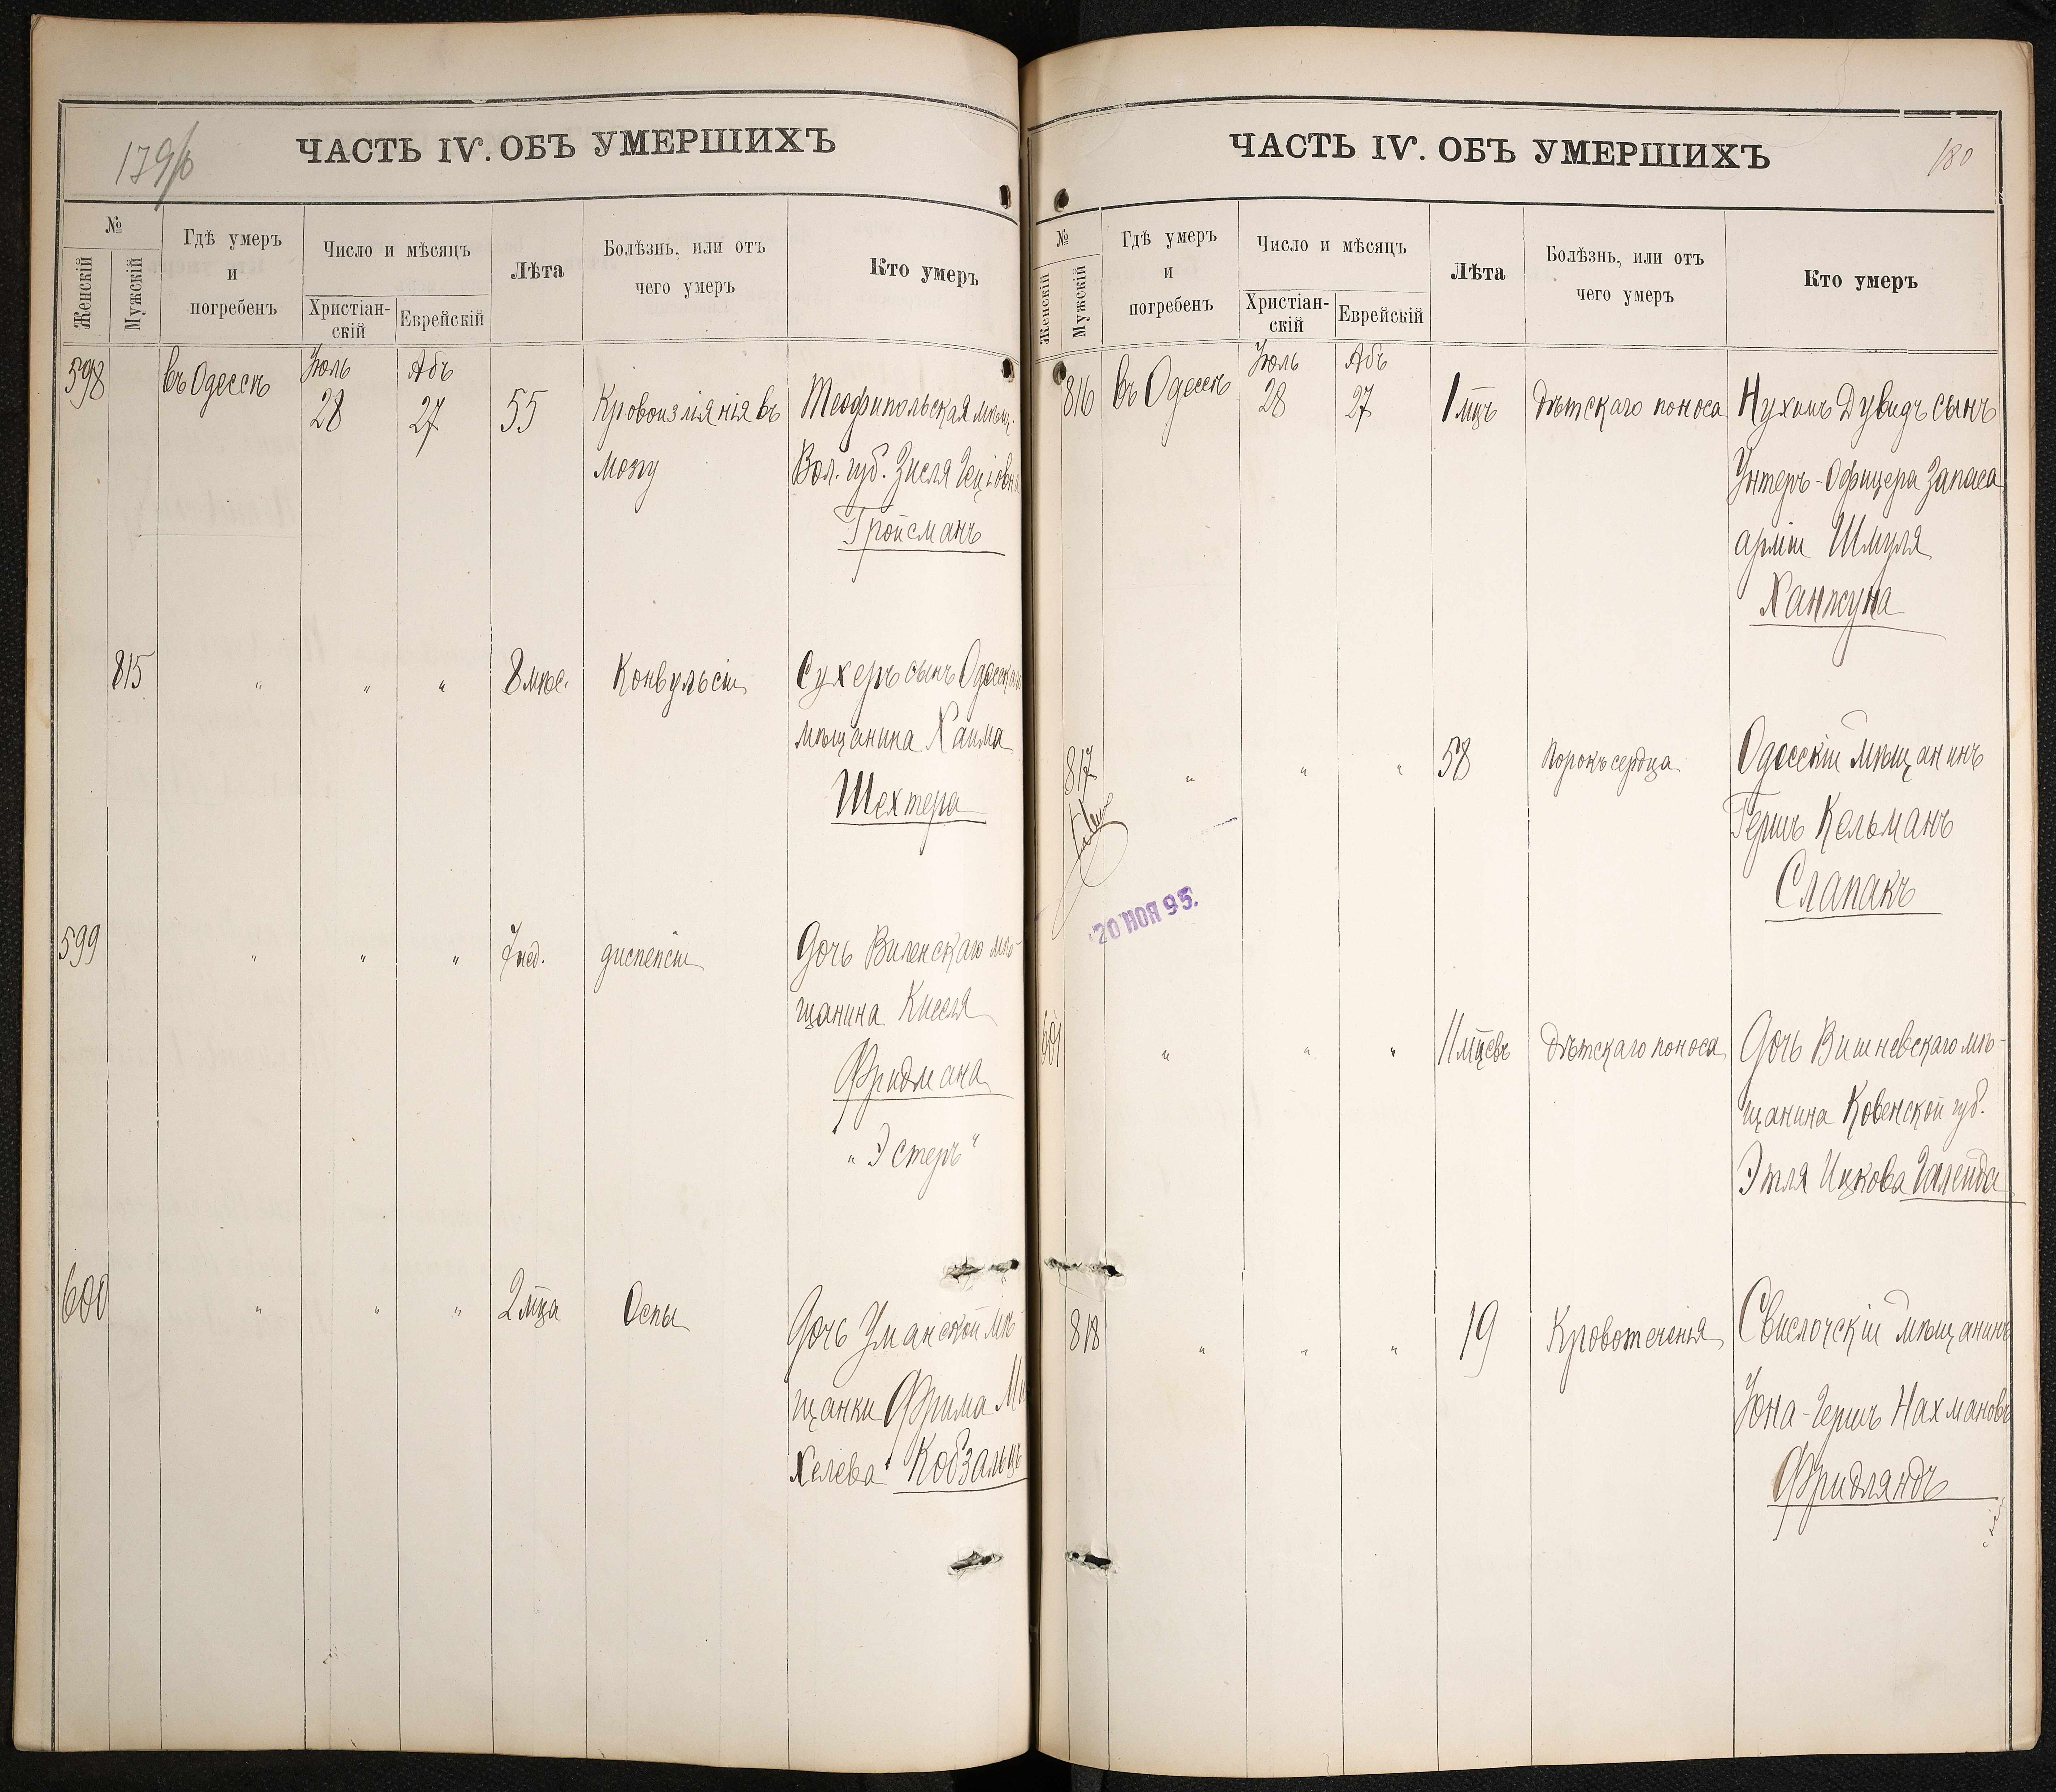 179/б
ЧАСТЬ IV. ОБЪ УМЕРШИХЪ
№
Женскій
Мужскій
Гдѣ умеръ
и
погребенъ
Число и мѣсяцъ
Христіан-
скій
Еврейскій
Лѣта
Болѣзнь, или отъ
чего умеръ
Кто умеръ
598 въ Одессѣ Іюль 28 Абъ 27 55 Кровоизліянія въ Теофипольская мѣщ.
мозгу Вол. губ. Зисля
Гройсманъ
815 " " " 8 мѣс. Конвульсіи Сухеръ сынъ Одесскаго
мѣщанина Хаима
Шехтера
599 " " " 7 нед. диспепсіи Дочь Виленскаго мѣ-
щанина Киселя
Фридмана
"Эстеръ"
600 " " " 2 мца Оспы Дочь Уманской мѣ-
щанки Фрима Ми
хелева Кобзалцъ
180
ЧАСТЬ IV. ОБЪ УМЕРШИХЪ
№
Женскій
Мужскій
Гдѣ умеръ
и
погребенъ
Число и мѣсяцъ
Христіан-
скій
Еврейскій
Лѣта
Болѣзнь, или отъ
чего умеръ
Кто умеръ
816 въ Одессѣ Іюль 28 Абъ 27 1 мцъ Дѣтскаго поноса Нухимъ Дувидъ сынъ
Унтеръ-Офицера Запаса
арміи Шмуля
817 " " " 58 Порокъ сердца Одесскій мѣщанинъ
Гершъ Кельманъ
Слапакъ
20 НОЯ 95.
601 " " " 11 мцевъ Дѣтскаго поноса Дочь Вишневскаго мѣ-
щанина Ковенской губ.
Этля Ицкова
818 " " " 19 Кровотеченья Свислочскій мѣщанинъ
Іона-Гершъ Нахмановъ
Фридляндъ